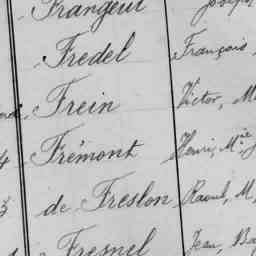 Frangeul Joseph
Fredel François
Frein Victor, M
4 Frémont Henri, Mie J
3 de Freslon Raoul, M,
Fresnel Jean, Ba